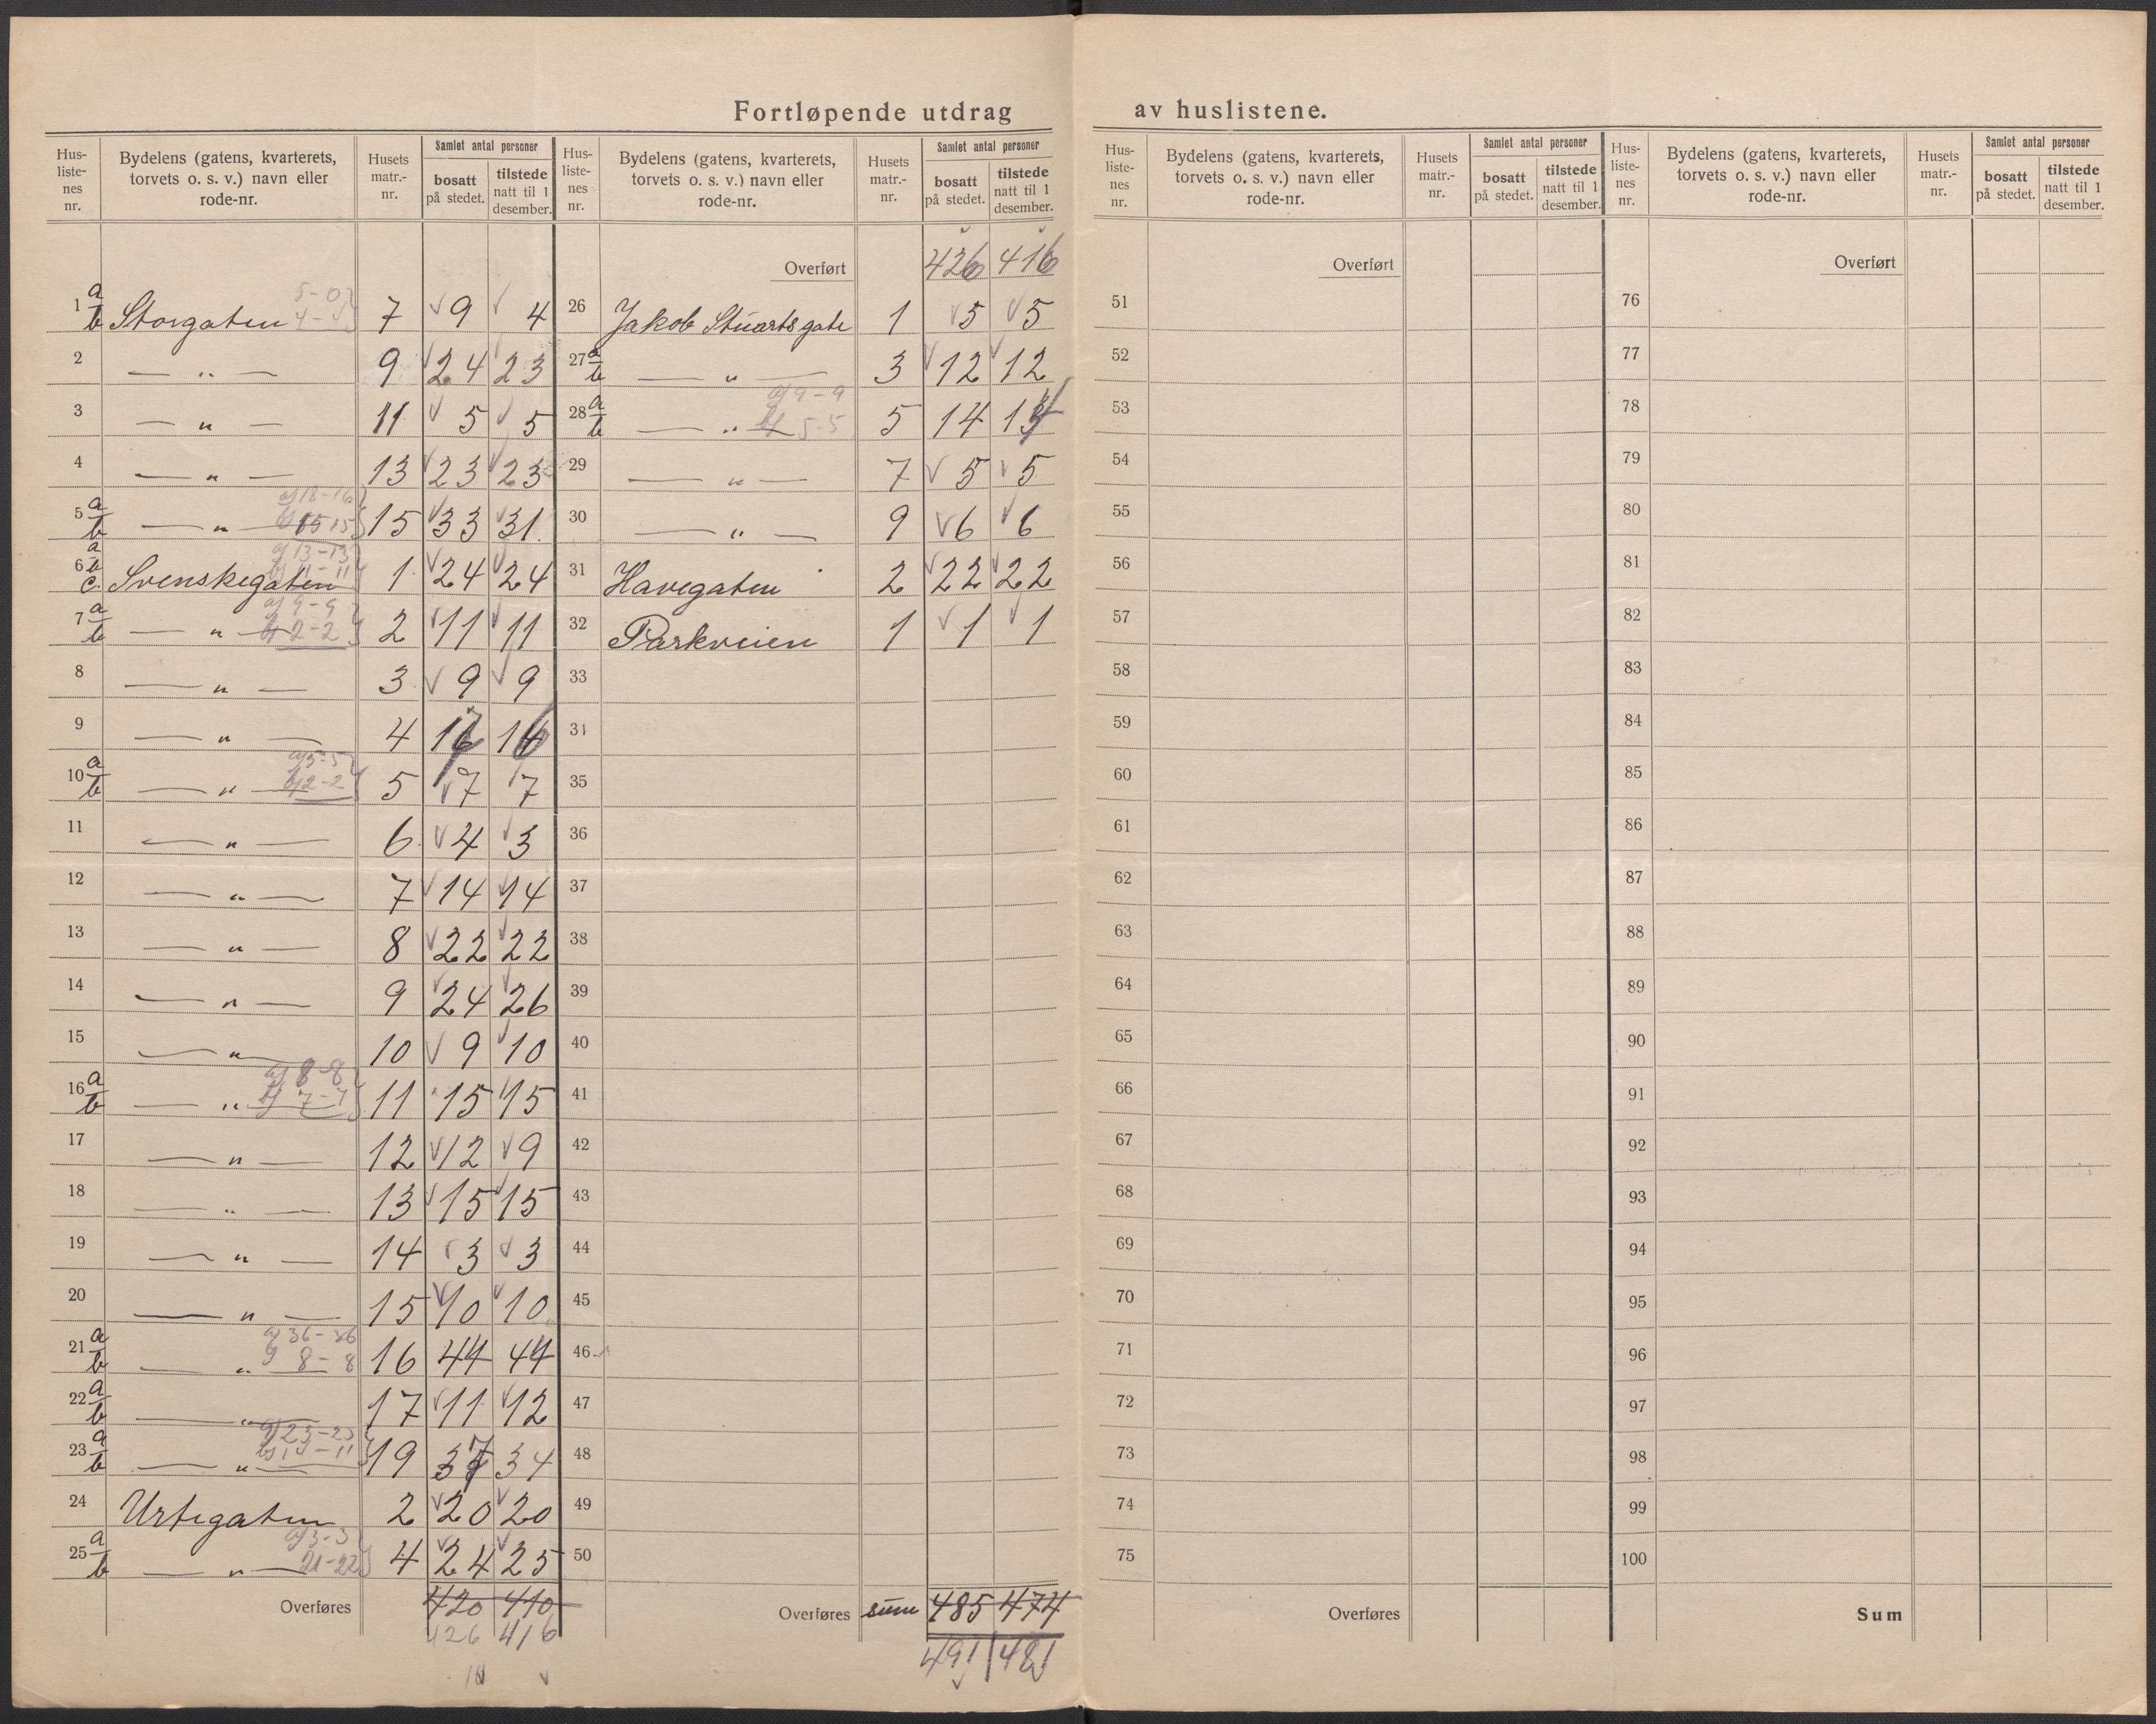 Fortløpende utdrag av huslistene.
Hus-listenes nr. | Bydelens (gatens, kvarterets, torvets o. s. v.) navn eller rode-nr. | Husets matr.-nr. | Samlet antal personer bosatt på stedet. | tilstede natt til 1 desember.
1 a b Storgaten 7 9 4
2 — „ — 9 24 23
3 — „ — 11 5 5
4 — „ — 13 23 23
5 a b — „ — 15 33 31
6 a b c Svenskegaten 1 24 24
7 a b — „ — a) 9-9 b) 2-2 2 11 11
8 — „ — 3 9 9
9 — „ — 4 17 16
10 a b — „ — a) 5-5 b) 2-2 5 7 7
11 — „ — 6 4 3
12 — „ — 7 14 14
13 — „ — 8 22 22
14 — „ — 9 24 26
15 — „ — 10 9 10
16 a b — „ — a) 8-8 b) 7-7 11 15 15
17 — „ — 12 12 9
18 — „ — 13 15 15
19 — „ — 14 3 3
20 — „ — 15 10 10
21 a b — „ — a) 36-36 b) 8-8 16 44 44
22 a b — „ — 17 11 12
23 a b — „ — 19 37 34
24 Urtegaten 2 20 20
25 a b — „ — a) 3-3 21-22 4 24 25
Overføres 420 410
426 416
Hus-listenes nr. | Bydelens (gatens, kvarterets, torvets o. s. v.) navn eller rode-nr. | Husets matr.-nr. | Samlet antal personer bosatt på stedet. | tilstede natt til 1 desember.
Overført 426 416
26 Jakob Stuarts gate 1 5 5
27 a b — „ — 3 12 12
28 a b — „ — a) 9-9 b) 5-5 5 14 14
29 — „ — 7 5 5
30 — „ — 9 6 6
31 Havegaten 2 22 22
32 Parkveien 1 1 1
33
34
35
36
37
38
39
40
41
42
43
44
45
46
47
48
49
50
Overføres sum 485 474
491 481
Hus-listenes nr. | Bydelens (gatens, kvarterets, torvets o. s. v.) navn eller rode-nr. | Husets matr.-nr. | Samlet antal personer bosatt på stedet. | tilstede natt til 1 desember.
Overført
51
52
53
54
55
56
57
58
59
60
61
62
63
64
65
66
67
68
69
70
71
72
73
74
75
Overføres
Hus-listenes nr. | Bydelens (gatens, kvarterets, torvets o. s. v.) navn eller rode-nr. | Husets matr.-nr. | Samlet antal personer bosatt på stedet. | tilstede natt til 1 desember.
Overført
76
77
78
79
80
81
82
83
84
85
86
87
88
89
90
91
92
93
94
95
96
97
98
99
100
Sum